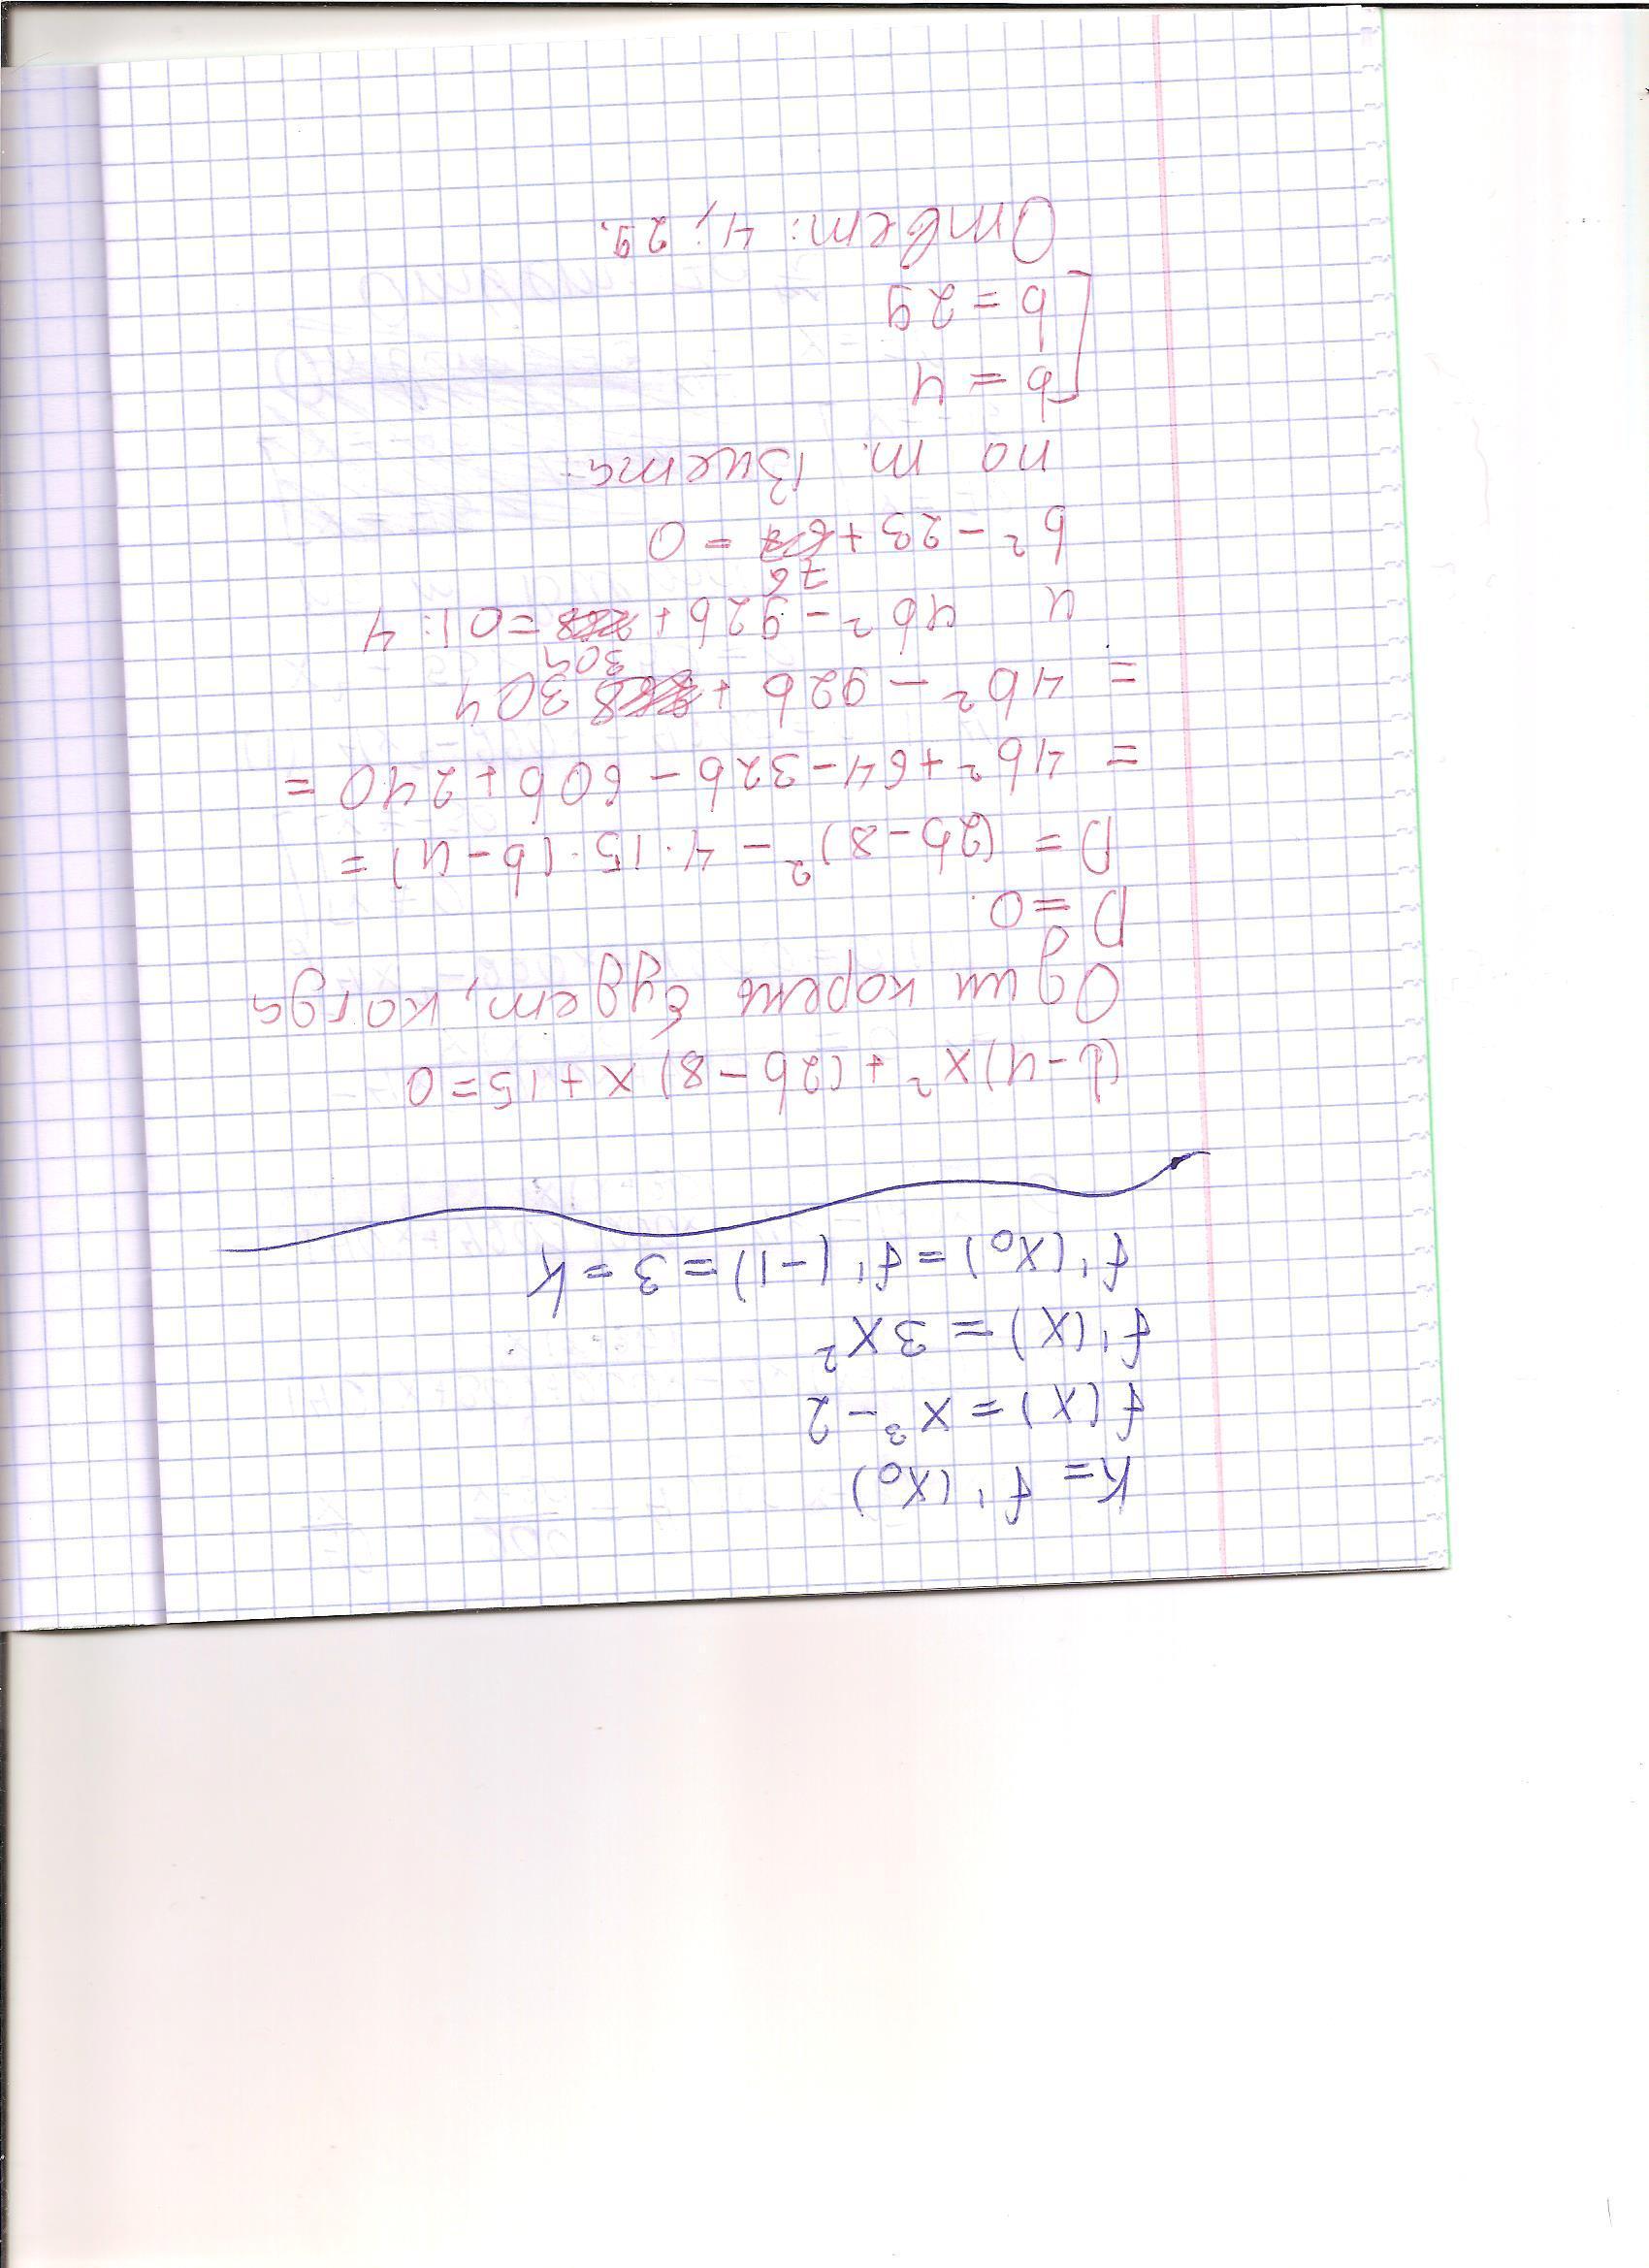 K = f'(x₀)
f(x) = x³ - 2
f'(x) = 3x²
f'(x₀) = f'(-1) = 3 = K
(b-4)x² + (2b-8)x + 15 = 0
Один корень будет, когда
D = 0.
D = (2b-8)² - 4·15·(b-4) =
= 4b² + 64 - 32b - 60b + 240 =
= 4b² - 92b + 304
и 4b² - 92b + 304 = 0 |:4
b² - 23 + 76 = 0
по т. Виета
b = 4
b = 29
Ответ: 4; 29.